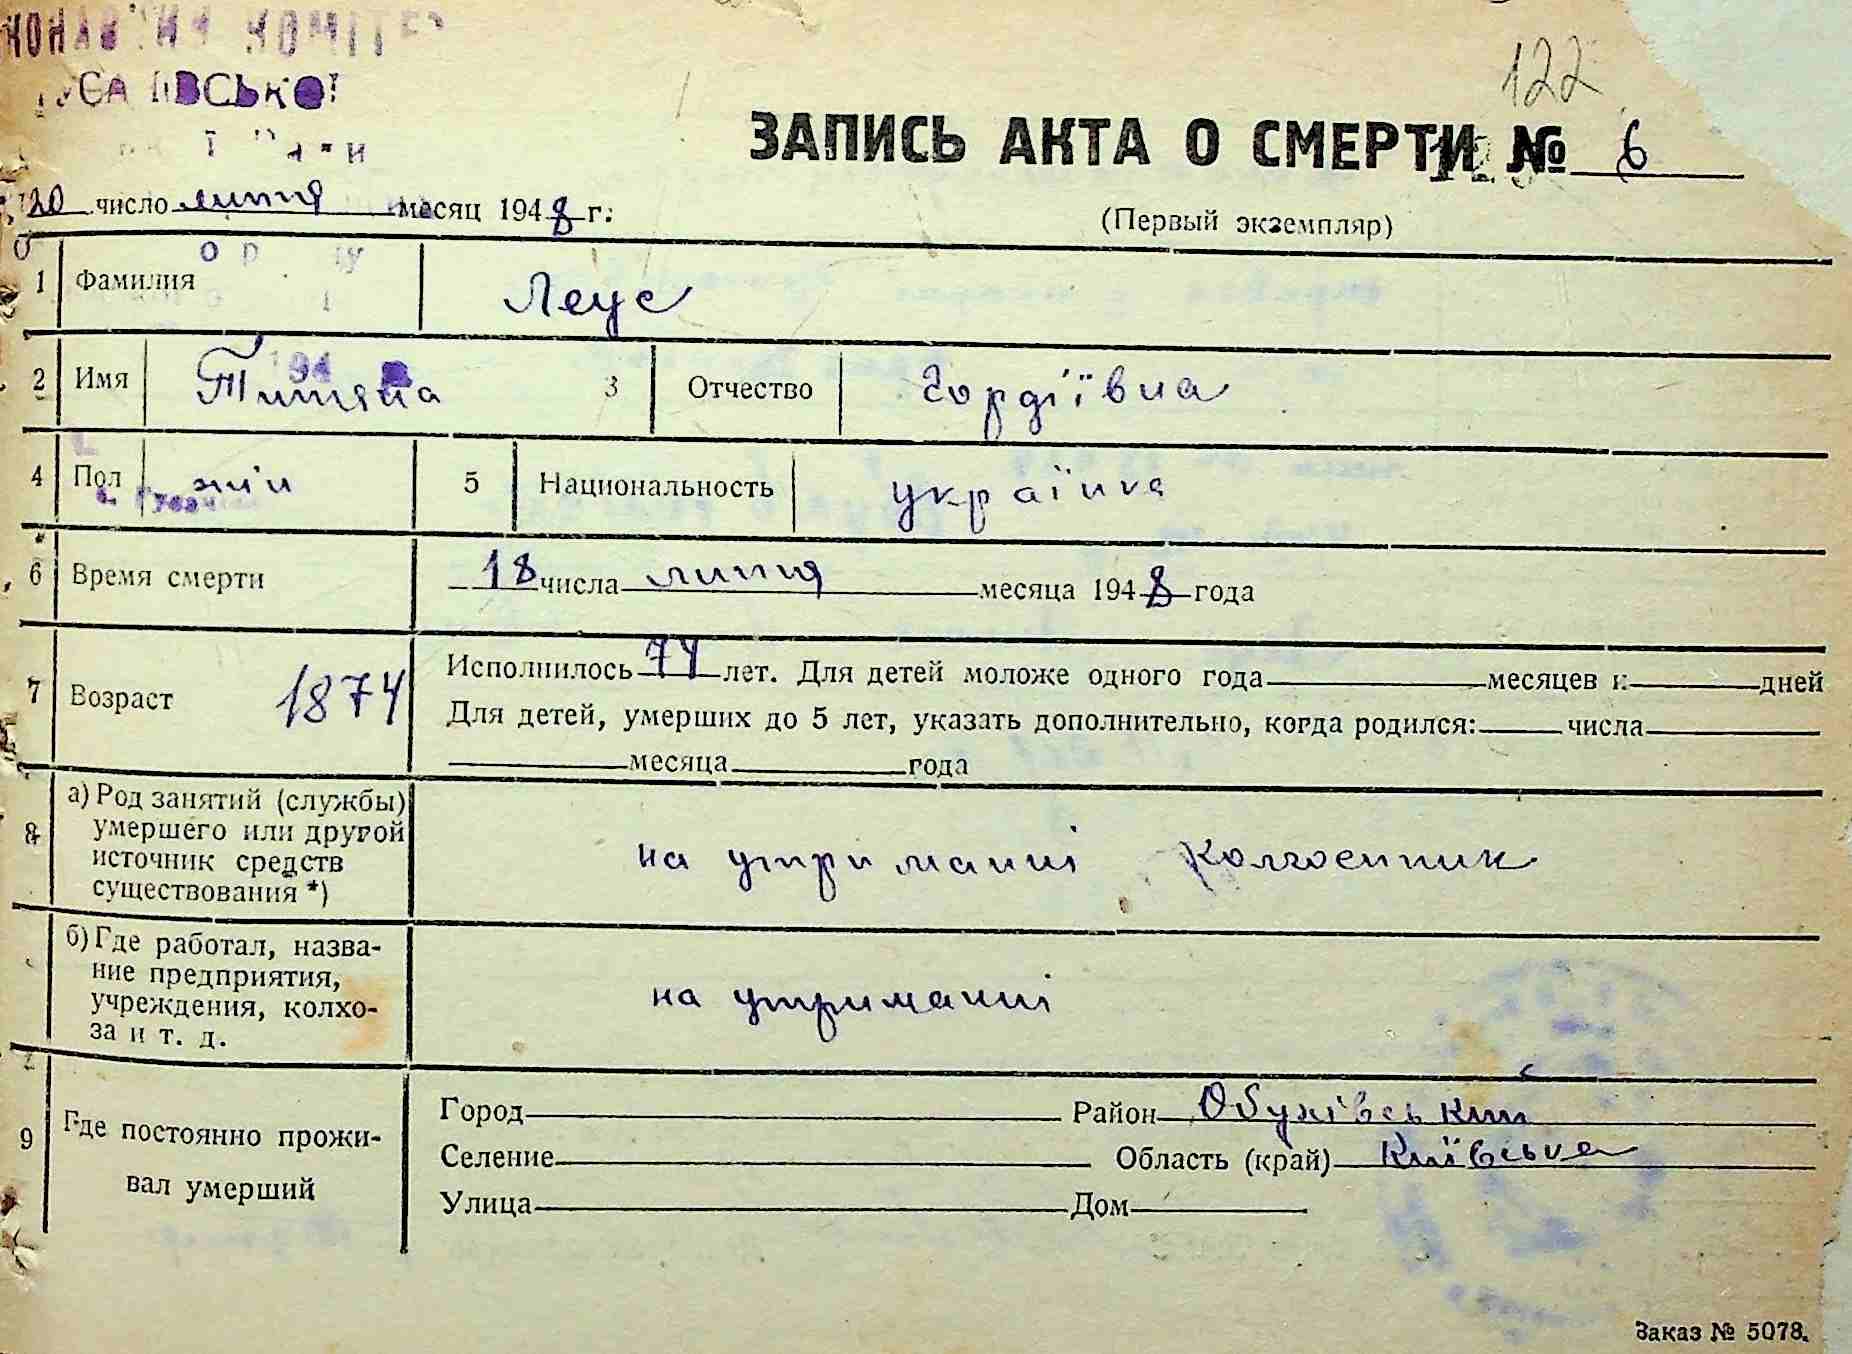 122
ЗАПИСЬ АКТА О СМЕРТИ № 6
20 число липня месяц 1948 г.
(Первый экземпляр)
1 Фамилия Леус
2 Имя Титяна 3 Отчество Гордіївна
4 Пол жін 5 Национальность українка
6 Время смерти 18 числа липня месяца 1948 года
7 Возраст 1874 Исполнилось 74 лет. Для детей моложе одного года месяцев и дней
Для детей, умерших до 5 лет, указать дополнительно, когда родился: числа
месяца года
8 а) Род занятий (службы)
умершего или другой
источник средств
существования *)
на утриманні колгоспник
б) Где работал, назва-
ние предприятия,
учреждения, колхо-
за и т. д.
на утриманні
9 Где постоянно прожи-
вал умерший
Город Район Обухівський
Селение Область (край) Київська
Улица Дом
Заказ № 5078.